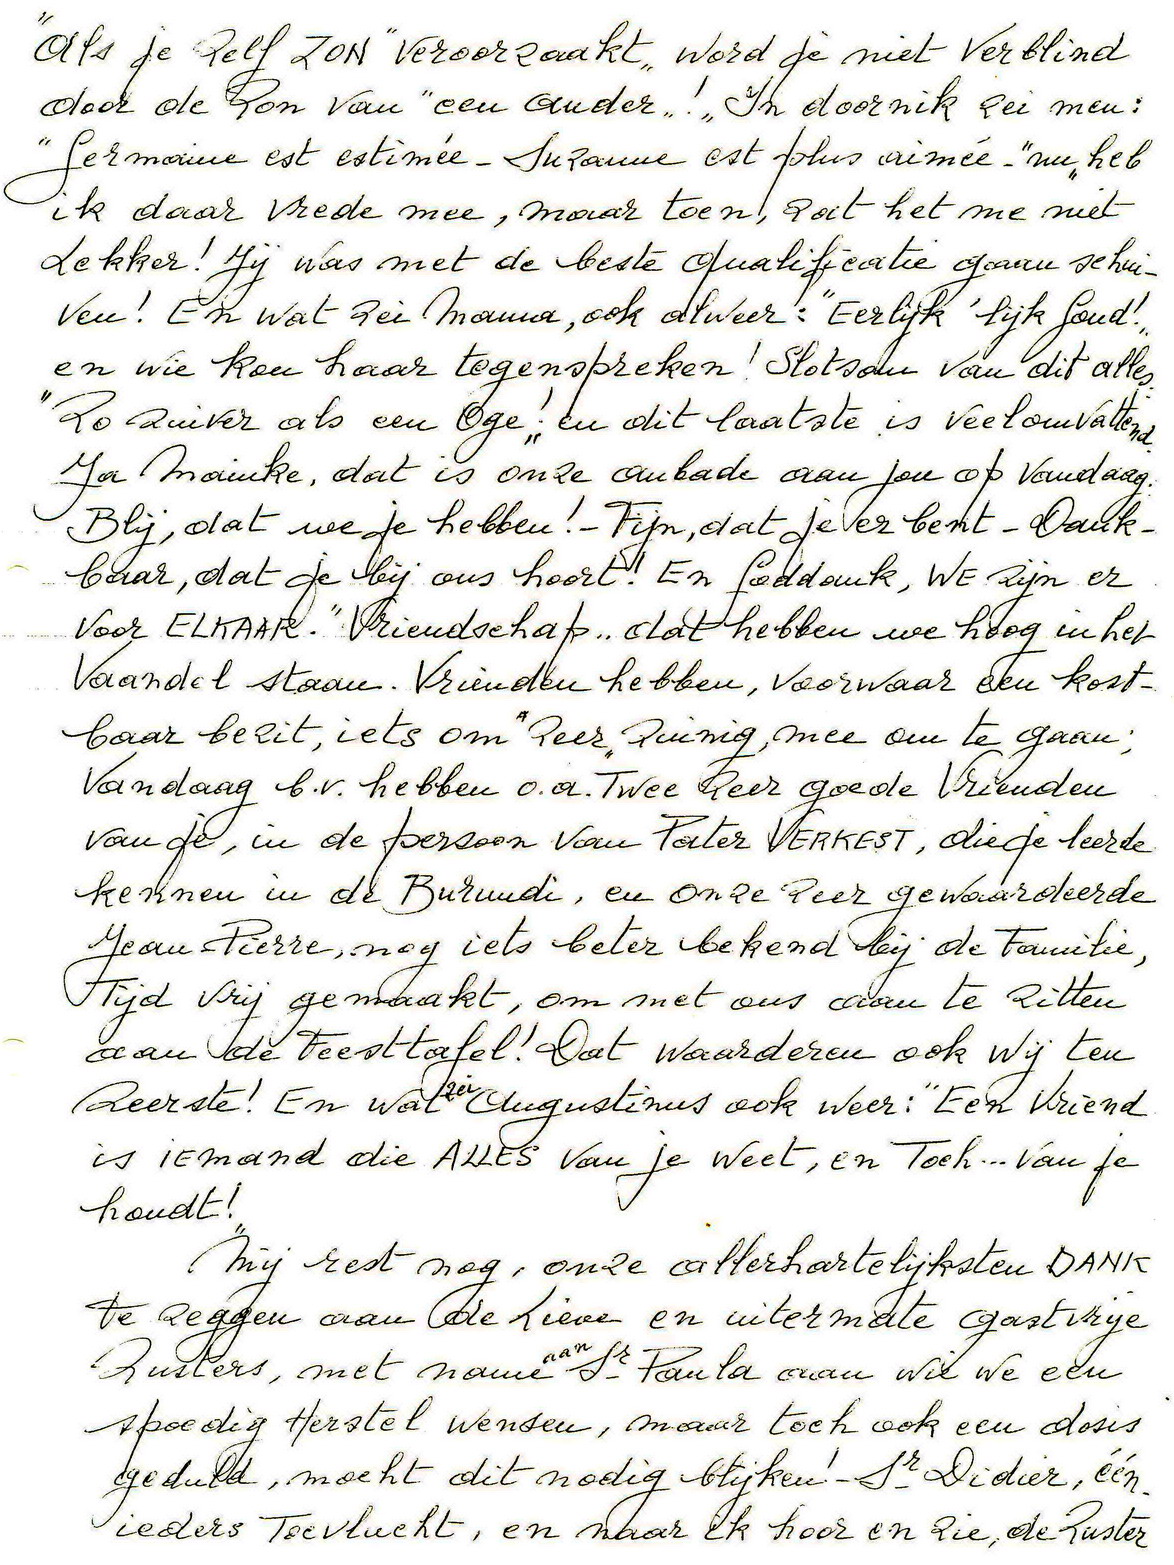 "Als je zelf ZON" veroorzaakt„ word je niet verblind
door de Zon van "een ander„!„ In doornik zei men:
"Germaine est estimée - Suzanne est plus aimée -"nu„ heb
ik daar vrede mee, maar toen, zat het me niet
Lekker! Jij was met de beste qualificatie gaan schui-
ven! En wat zei Mama, ook alweer: "Eerlijk 'lijk Goud!„
en wie kon haar tegenspreken! Slotsom van dit alles
"Zo zuiver als een Oge!„ en dit laatste is veelomvattend.
Ja Mainke, dat is onze aubade aan jou op vandaag.
Blij, dat we je hebben! - Fijn, dat je er bent - Dank-
baar, dat je bij ons hoort! En Goddank, WE zijn er
voor ELKAAR." Vriendschap.. dat hebben we hoog in het
Vaandel staan. Vrienden hebben, voorwaar een kost-
baar bezit, iets om "zeer„ zuinig, mee om te gaan;
Vandaag b.v. hebben o.a. Twee zeer goede Vrienden
van je, in de persoon van Pater VERKEST, die je leerde
kennen in de Burundi, en onze zeer gewaardeerde
Jean-Pierre, nog iets beter bekend bij de Familie,
Tijd vrij gemaakt, om met ons aan te zitten
aan de Feesttafel! Dat waarderen ook wij ten
zeerste! En wat zei Augustinus ook weer: "Een Vriend
is iemand die ALLES van je weet, en Toch... van je
houdt!„
Mij rest nog, onze allerhartelijksten DANK
te zeggen aan de Lieve en uitermate gastvrije
Zusters, met name aan Sr Paula aan wie we een
spoedig Herstel wensen, maar toch ook een dosis
geduld, mocht dit nodig blijken! - Sr Didier, één
ieders Toevlucht, en naar ik hoor en zie, de Zuster